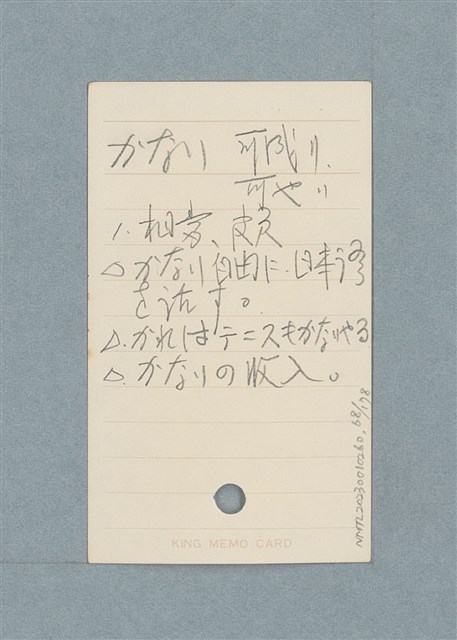 かなり 可成り.
可也り
1. 相当、頗
△ かなり自由に.日本語
を話す。
△. かれはテニスもかなりやる
△. かなりの収入。
KING MEMO CARD
NMTL20230010260, 68/178